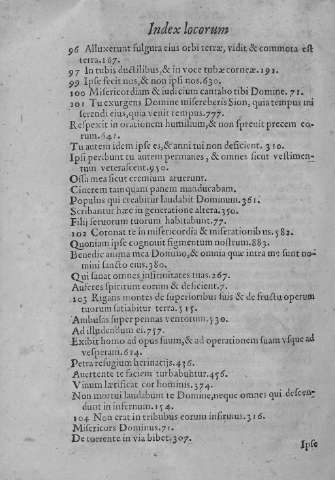 Index locorum
96 Alluxerunt fulgura eius orbi terræ, vidit & commota est
terra.167.
97 In tubis ductilibus, & in voce tubæ corneæ.191.
99 Ipse fecit nos, & non ipsi nos.630.
100 Misericordiam & iudicium cantabo tibi Domine.71.
101 Tu exurgens Domine misereberis Sion, quia tempus mi
serendi eius, quia venit tempus.777.
Respexit in orationem humilium, & non spreuit precem eo-
rum.641.
Tu autem idem ipse es, & anni tui non deficient.310.
Ipsi peribunt tu autem permanes, & omnes sicut vestimen-
tum veterascent.950.
Ossa mea sicut cremium aruerunt.
Cinerem tanquam panem manducabam.
Populus qui creabitur laudabit Dominum.361.
Scribantur hæc in generatione altera.350.
Filij seruorum tuorum habitabunt.77.
102 Coronat te in misericordia & miserationibus.582.
Quoniam ipse cognouit figmentum nostrum.883.
Benedic anima mea Domino, & omnia quæ intra me sunt no-
mini sancto eius.380.
Qui sanat omnes infirmitates tuas.267.
Auferes spiritum eorum & deficient.7.
103 Rigans montes de superioribus suis & de fructu operum
tuorum satiabitur terra.515.
Ambulas super pennas ventorum.530.
Ad illudendum ei.757.
Exibit homo ad opus suum, & ad operationem suam vsque ad
vesperam.614.
Petra refugium herinacijs.436.
Auertente te faciem turbabuntur.456.
Vinum lætificat cor hominis.374.
Non mortui laudabunt te Domine, neque omnes qui descen-
dunt in infernum.154.
104 Non erat in tribubus eorum infirmus.316.
Misericors Dominus.71.
De torrente in via bibet.307.
Ipse